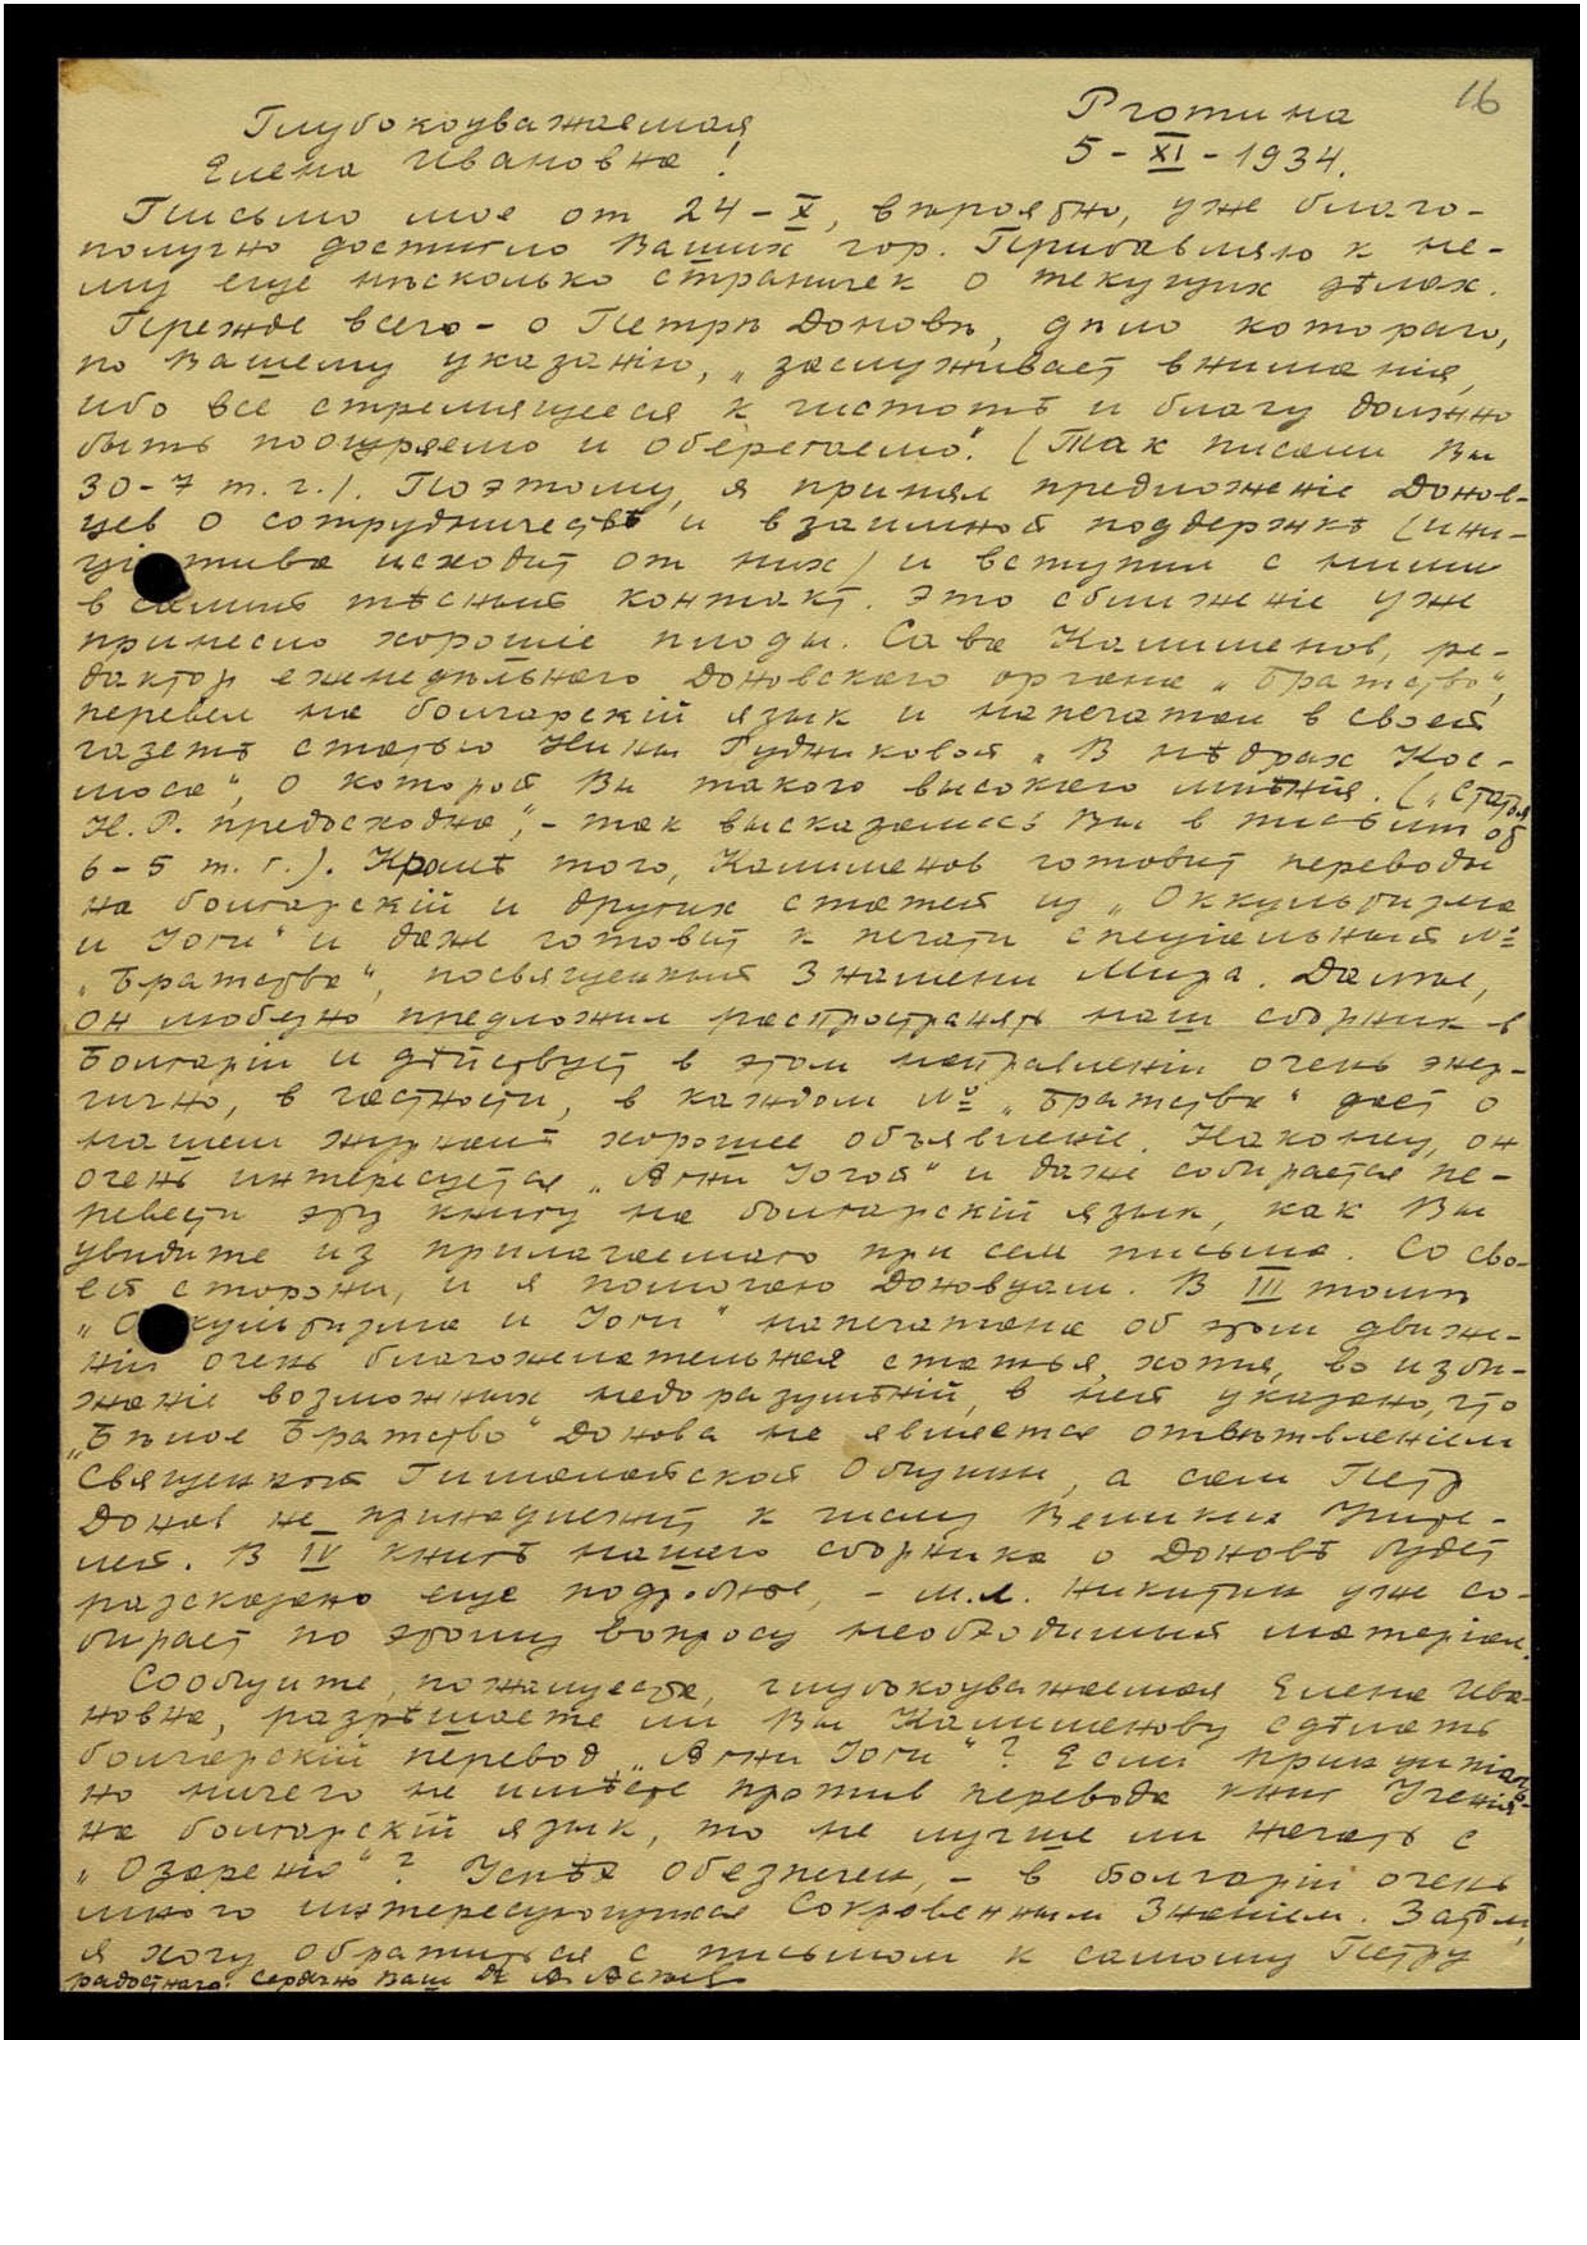 16
Рготина
5 - XI - 1934.
Глубокоуважаемая
Елена Ивановна!
Письмо мое от 24 - X, вѣроятно, уже благо-
получно достигло Ваших гор. Прибавляю к не-
му еще нѣсколько страничек о текущих дѣлах.
Прежде всего - о Петрѣ Доновѣ, дѣло котораго,
по Вашему указанію, „заслуживает вниманія,
ибо все стремящееся к чистотѣ и благу должно
быть поощряемо и оберегаемо“. (Так писали Вы
30-7 т. г.). Поэтому, я принял предложеніе Донов-
цев о сотрудничествѣ и взаимной поддержкѣ (ини-
ці тива исходит от них) и вступил с ними
в самый тѣсный контакт. Это сближеніе уже
принесло хорошіе плоды. Сава Калименов, ре-
дактор еженедѣльнаго Доновскаго органа „Братство“,
перевел на болгарскій язык и напечатал в своей
газетѣ статью Нины Рудниковой „В нѣдрах Кос-
моса“, о которой Вы такого высокаго мнѣнія. („Статья
Н. Р. превосходна“, - так высказались Вы в письмѣ от
6 - 5 т. г.). Кромѣ того, Калименов готовит переводы
на болгарскій и других статей из „Оккультизма
и Іоги“ и даже готовит к печати спеціальный №
„Братства“, посвященный Знамени Мира. Далѣе,
он любезно предложил распространять наш сборник в
Болгаріи и дѣйствует в этом направленіи очень энер-
гично, в частности, в каждом № „Братства“ дает о
нашем журналѣ хорошее объявленіе. Наконец, он
очень интересуется „Агни Іогой“ и даже собирается пе-
ревести эту книгу на болгарскій язык, как Вы
увидите из прилагаемаго при сем письма. Со сво-
ей стороны, и я помогаю Доновцам. В III томѣ
„О культизма и Іоги“ напечатана об этом движе-
ніи очень благожелательная статья, хотя, во избѣ-
жаніе возможных недоразумѣній, в ней указано, что
„Бѣлое Братство“ Донова не является отвѣтвленіем
Священной Гималайской Общины, а сам Петр
Донов не принадлежит к числу Великих Учите-
лей. В IV книгѣ нашего сборника о Доновѣ будет
разсказано еще подробнѣе, - М.А. Никитин уже со-
бирает по этому вопросу необходимый матеріал.
Сообщите, пожалуйста, глубокоуважаемая Елена Ива-
новна, разрѣшаете ли Вы Калименову сдѣлать
болгарскій перевод „Агни Іоги“? Если принципіаль-
но ничего не имѣете против перевода книг Ученія
на болгарскій язык, то не лучше ли начать с
„Озаренія“? Успѣх обезпечен, - в Болгаріи очень
много интересующихся Сокровенным Знаніем. Затѣм,
я хочу обратиться с письмом к самому Петру
радостнаго. Сердечно Ваш Др А. Асѣев